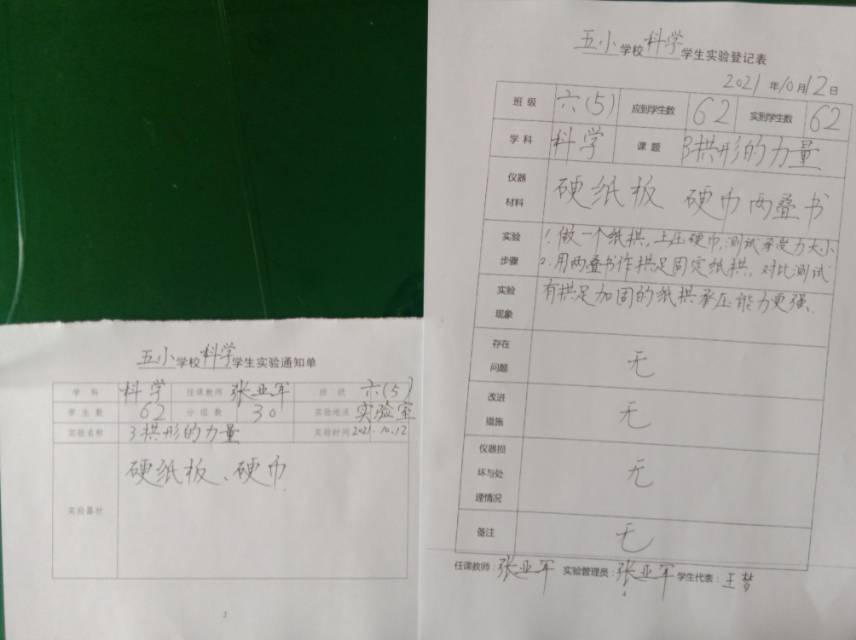 五小学校科学学生实验通知单
学科 科学 任课教师 张业军 班级 六(5)
学生数 62 分组数 30 实验地点 实验室
实验名称 3拱形的力量 实验时间 2021.10.12
实验器材 硬纸板、硬巾
五小学校科学学生实验登记表
2021年10月12日
班级 六(5) 应到学生数 62 实到学生数 62
学科 科学 课题 3拱形的力量
仪器材料 硬纸板 硬币两叠书
实验步骤 1.做一个纸拱,上压硬币,测试承受力大小
2.用两叠书作拱足固定纸拱,对比测试
实验现象 有拱足加固的纸拱承压能力更强.
存在问题 无
改进措施 无
仪器损坏与处理情况 无
备注 无
任课教师:张业军 实验管理员:张业军 学生代表:王梦